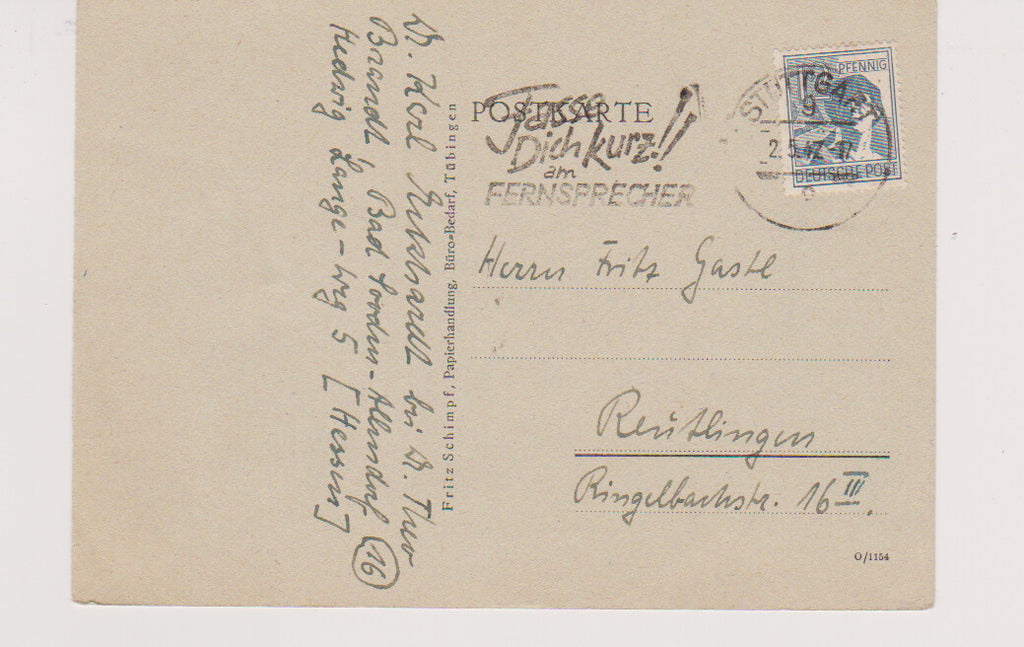 Dr. Karl
Brandt, Bad Sooden-Allendorf (16
Hedwig Lange-Weg 5 [Hessen]
bei Dr. Theo
Fritz Schimpf, Papierhandlung, Büro=Bedarf, Tübingen
POSTKARTE
Fasse
Dich kurz!!
am
FERNSPRECHER
STUTTGART
9
PFENNIG
DEUTSCHE POST
Herrn Fritz Gastl
Reutlingen
Ringelbachstr. 16 III.
O/1154